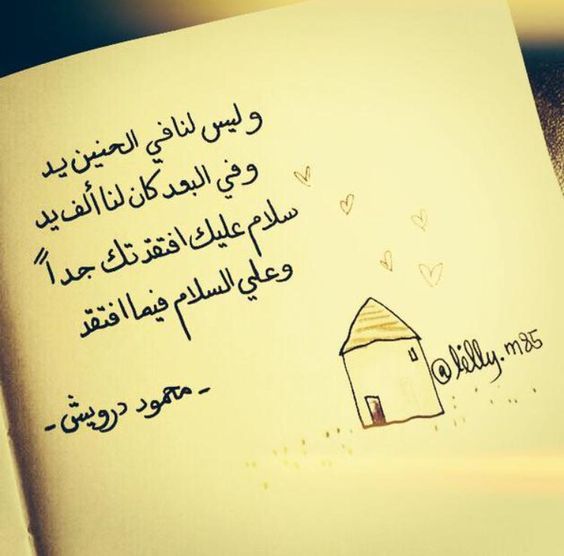 وليس لنا في الحنين يد
وفي البعد كان لنا ألف يد
سلام عليك افتقدتك جداً
وعلي السلام فيما افتقد
- محمود درويش -
@lilly.m85